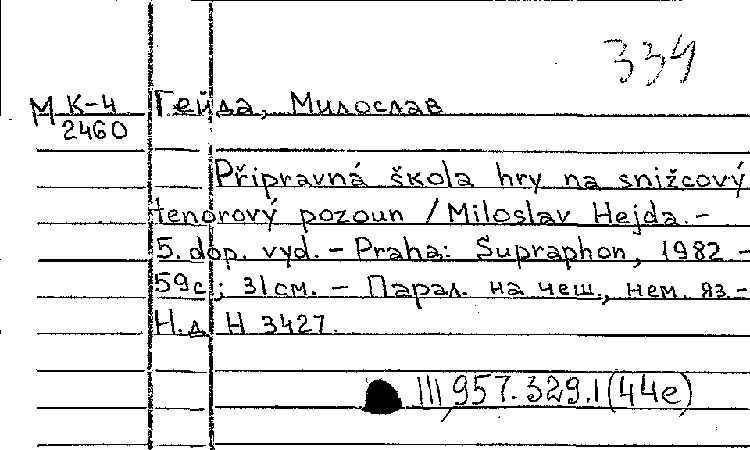 334
М К-4 Гейда, Милослав
2460
Připravná škola hry na snižcový
tenorový pozoun / Miloslav Hejda. -
5. dop. vyd. - Praha: Supraphon, 1982 -
59с; 31см. - Парал. на чеш., нем. яз. -
Н.д. Н 3427.
III, 957.329.1(44е)